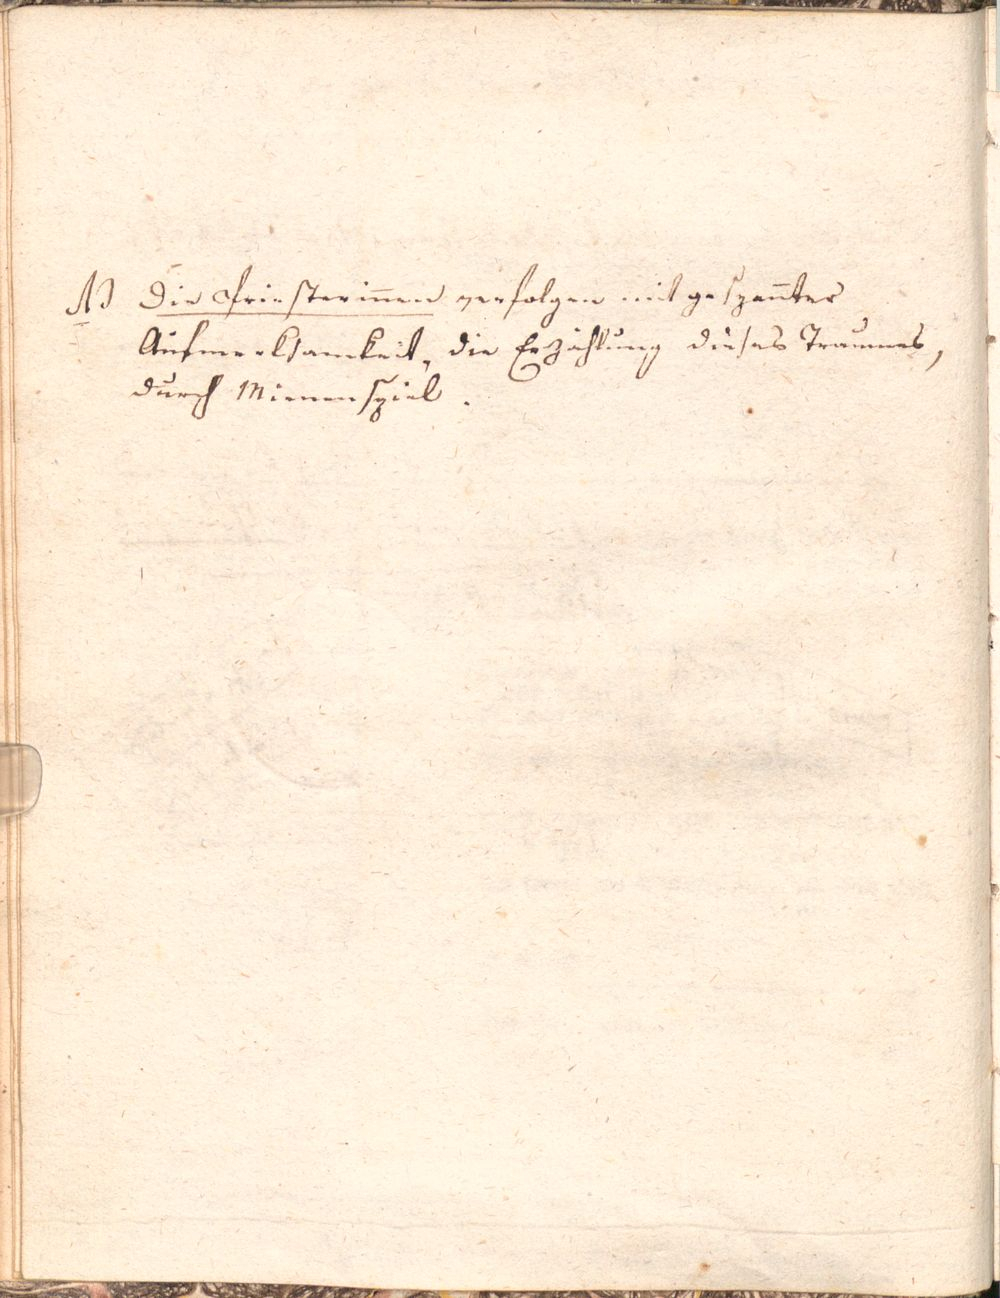 N) Die Priesterinnen verfolgen mit gespannter
Aufmerksamkeit, die Erzählung dieses Traumes,
durch Mienenspiel.